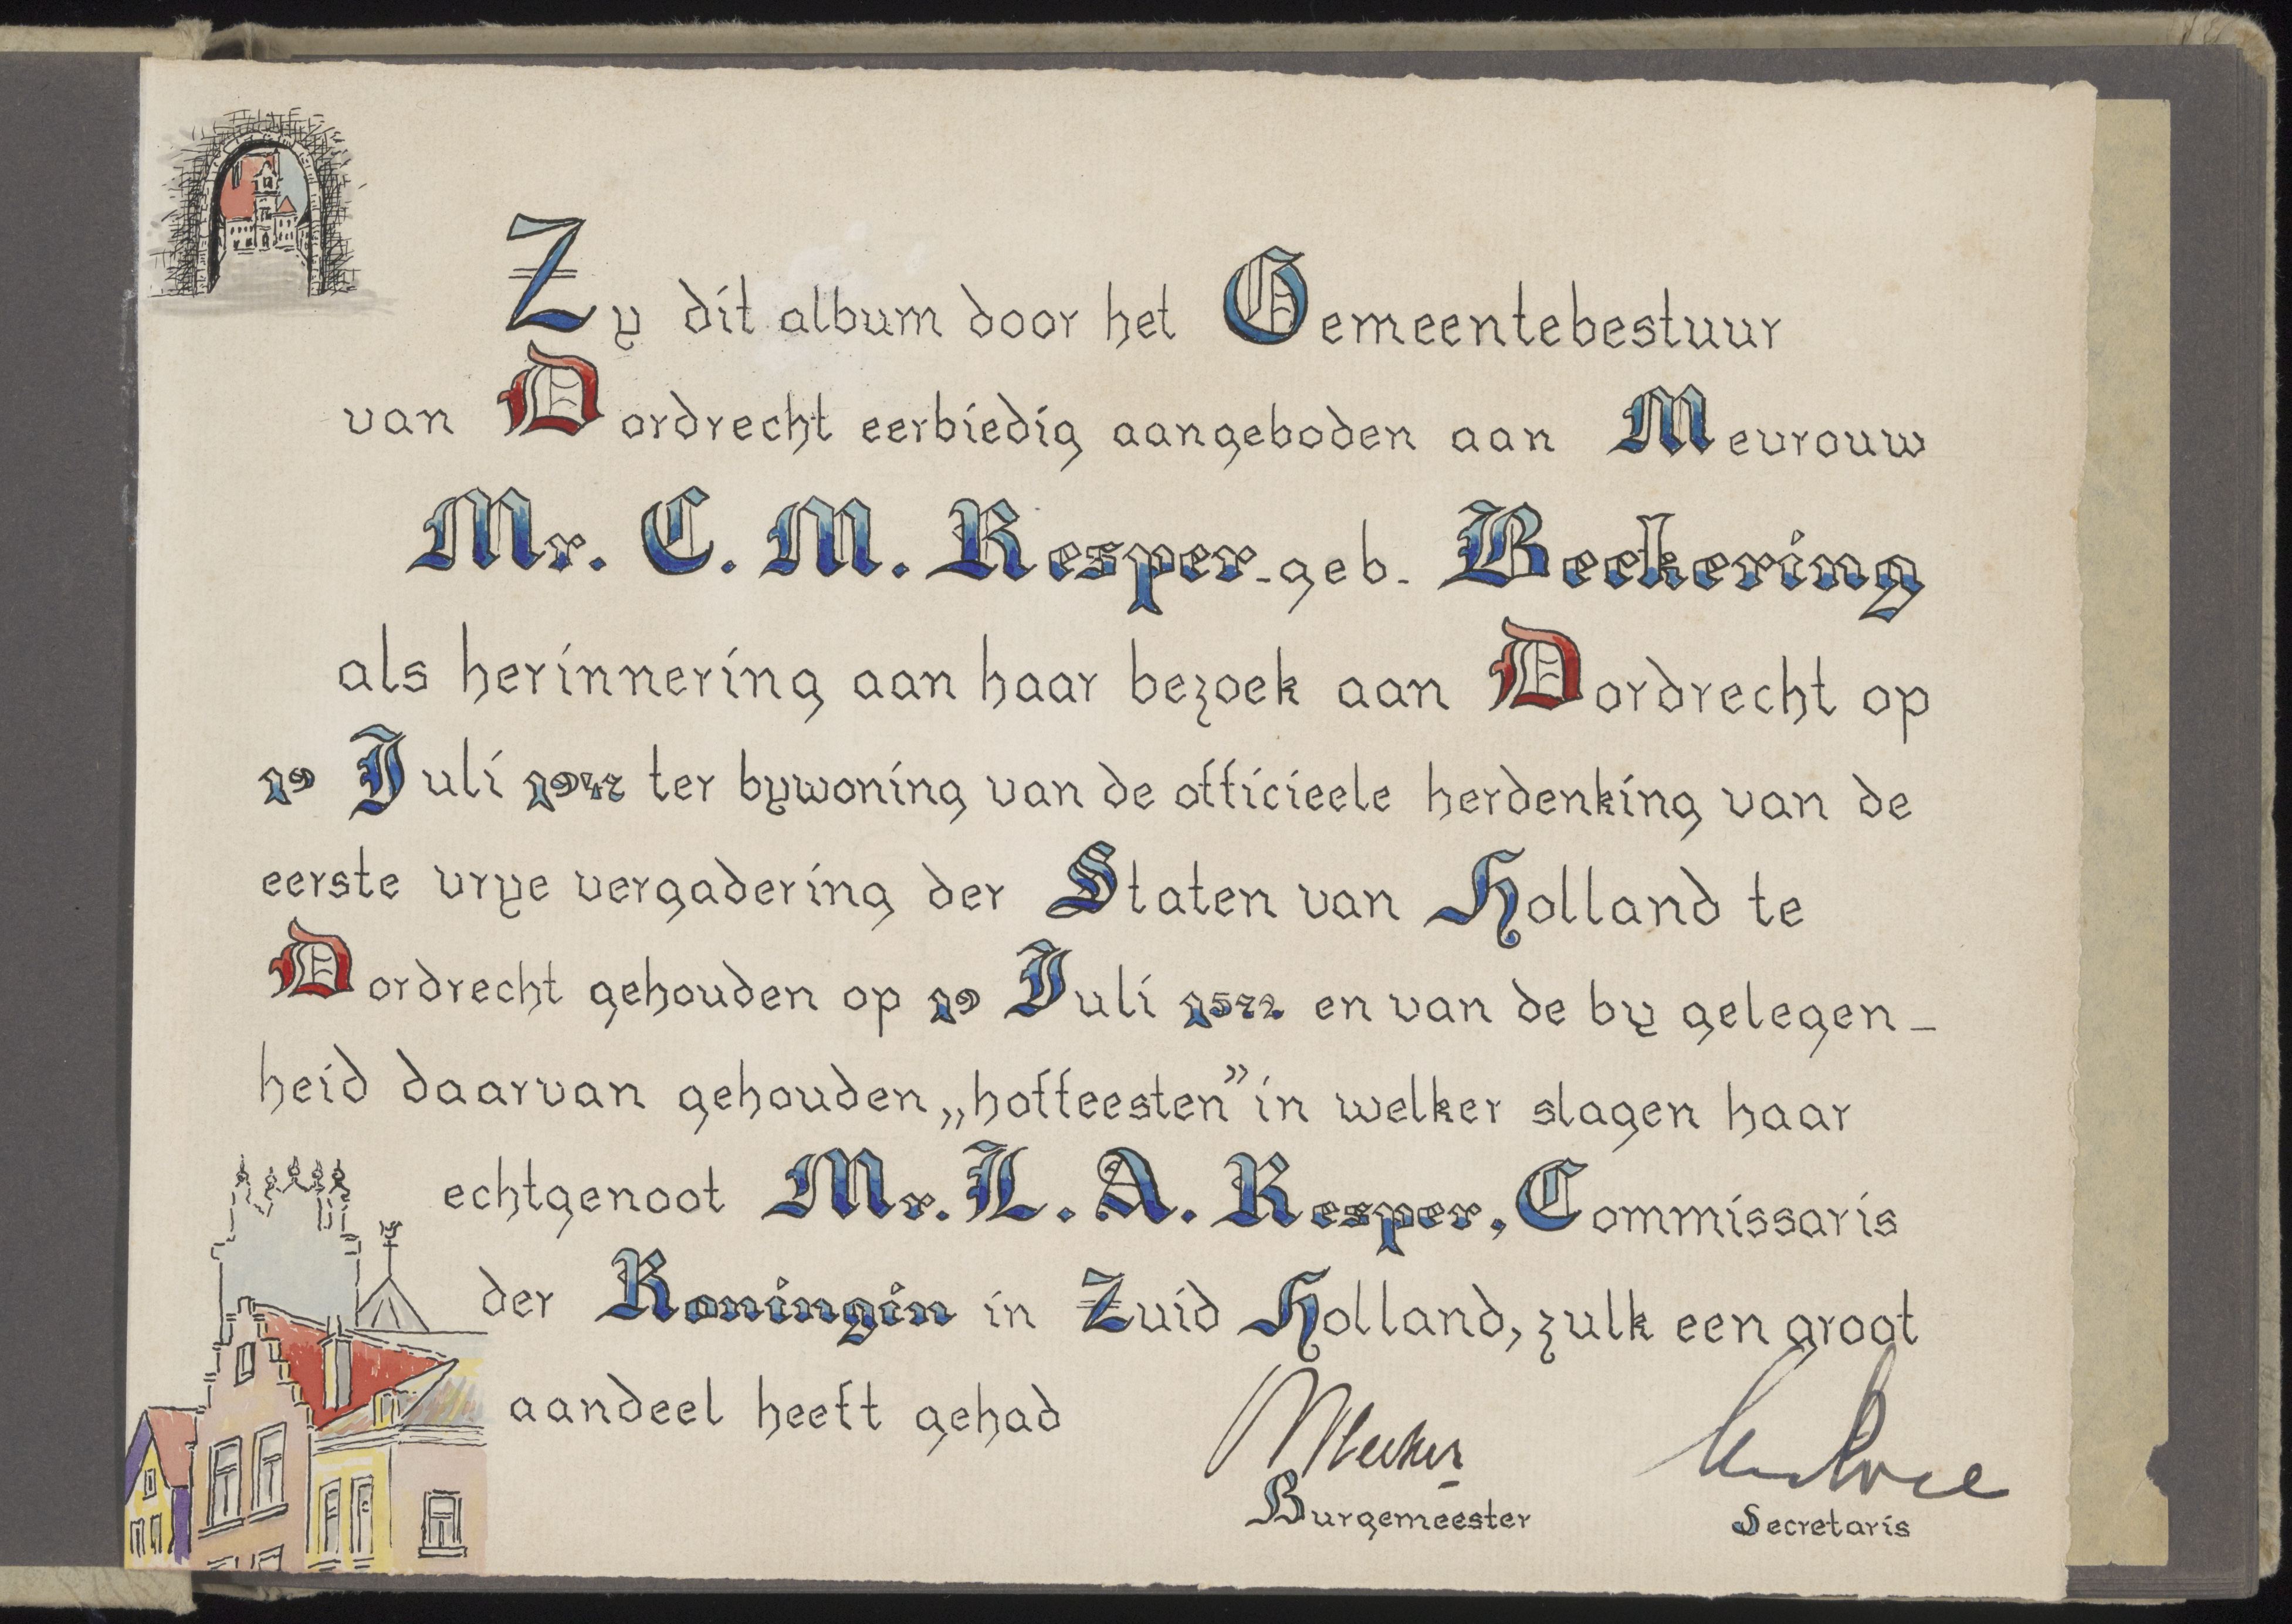 Zy dit album door het Gemeentebestuur
van Dordrecht eerbiedig aangeboden aan Mevrouw
Mr. C. M. Kesper - geb. Beckering
als herinnering aan haar bezoek aan Dordrecht op
19 Juli 1947 ter bywoning van de officieele herdenking van de
eerste vrye vergadering der Staten van Holland te
Dordrecht gehouden op 19 Juli 1572. en van de by gelegen-
heid daarvan gehouden „hoffeesten” in welker slagen haar
echtgenoot Mr. L. A. Kesper, Commissaris
der Koningin in Zuid Holland, zulk een groot
aandeel heeft gehad
Burgemeester
Secretaris